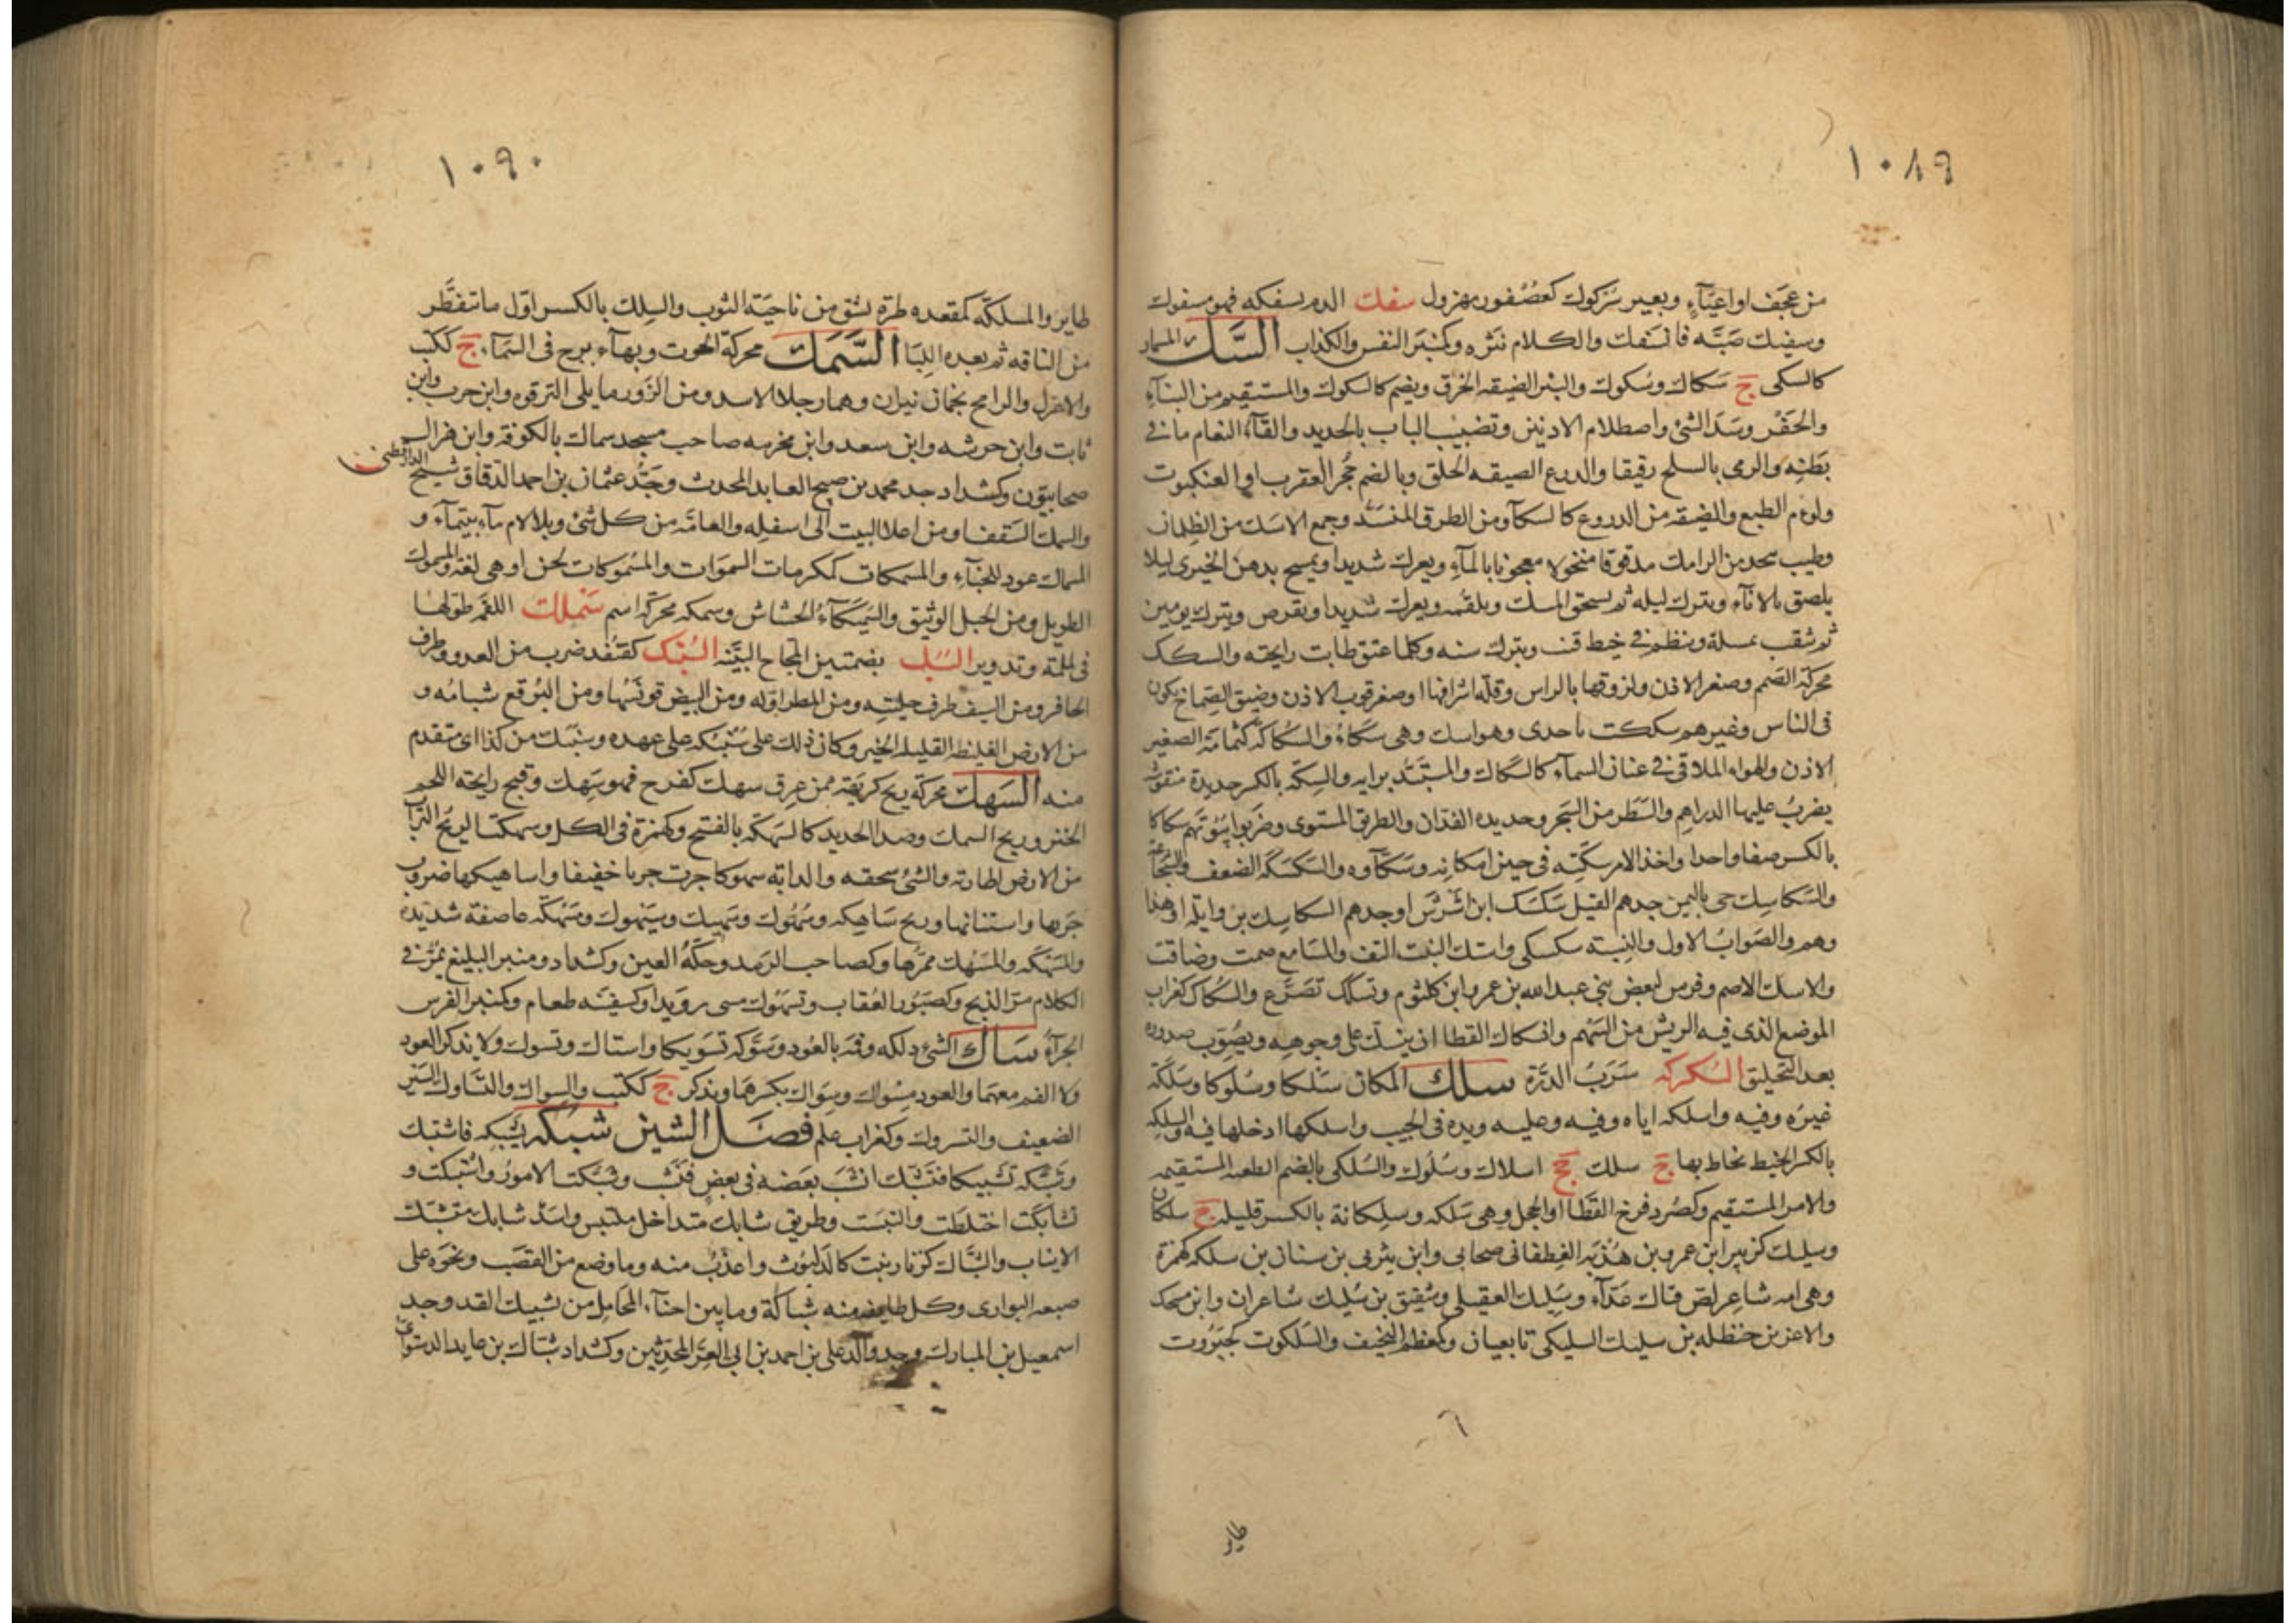 ١٠٨٩
من عجف او اعيآء وبعير سزكوك كعصفور مهزول سفك الدم يسفكه فهو مسفوك
وسفيك صبّه فانسفك والكلام نثره وكمنبر النفس والكذاب السّك المسمار
كالسكى ج سكاك وسكوك والبئر الضيقه الخرق ويضم كالسكوك والمستقيم من البنآء
والحفر وسدّ الشئ واصطلام الاذنين وتضبيب الباب بالحديد والقآء النعام ما فى
بطنه والرمى بالسلح رقيقا والدرع الضيقه الحلق وبالضم جحر العقرب او العنكبوت
ولوم الطبع والضيقه من الدروع كالسكآ ومن الطرق المنسدّ وجمع الاسك من الظلمان
وطيب يتخذ من الرامك مدقوقا منخولا معجونا بالمآء ويعرك شديدا ويمسح بدهن الخيرى ليلا
يلصق بالانآء ويترك ليله ثم يسحق المسك ويلقمه ويعرك شديدا ويقرص ويترك يومين
ثم يثقب بمسلة وينظم فى خيط قنب ويترك سنه وكلما عتق طابت رايحته والسكك
محركة الصمم وصغر الاذن ولزوقها بالراس وقلّة اشرافها او صغر قوب الاذن وضيق الصماخ يكون
فى الناس وغيرهم سككت يا جدى وهو اسك وهى سكآء والسكاكه كثمامة الصغير
الاذن والهواء الملاقى فى عنان السمآء كالسكاك والمستبدّ برايه والسكّه بالكسر حديدة منقوشة
يضرب عليها الدراهم والسطر من الشجر وحديدة الفدان والطريق المستوى وضربوا بيوتهم سكاكا
بالكسر صفا واحدا واخذ الامر بسكّته فى حين امكانه وسكآء وه والسكسكه الضعف والشجاعة
والسكاسك حى باليمن جدهم القيل سكسك ابن اشرس او جدهم السكاسك بن وايله او هذا
وهم والصواب الاول والنسبه سكسكى واستك النبت التف والمسامع صمت وضاقت
والاسك الاصم وفرس لبعض بنى عبد الله بن عمرو ابن كلثوم وتسكّك تضرّع والسكاك كغراب
الموضع الذى فيه الريش من السهم وانسكاك القطا ان ينسك على وجوهه ويصوّب صدوره
بعد التحليق السكركه شرب الذرة سلك المكان سلكا وسلوكا وسلكه
غيره وفيه واسلكه اياه وفيه وعليه ويده فى الجيب واسلكها ادخلها فيه والسلكه
بالكسر الخيط يخاط بها ج سلك جج اسلاك وسلوك والسلكى بالضم الطعنه المستقيمه
والامر المستقيم وكصرد فرخ القطا او الحجل وهى سلكه وسلكانة بالكسر قليله ج سلكان
وسليك كزبير ابن عمرو بن هدبه الغطفانى صحابى وابن يثربى بن سنان بن سلكه كهمزة
وهى امه شاعر لص فتاك عدآء وسليك العقيلى وشقيق بن سليك شاعران وابن مسحل
والاعز بن حنظله بن سليك السليكى تابعيان وكمعظم النحيف والسلكوت كجبروت
طاير
١٠٩٠
طاير والمسلكه كمقعده طرة تشق من ناحية الثوب والسلك بالكسر اول ما تتفطّر
من الناقه ثم بعده اللبا السّمك محركة الحوت وبهآء برج فى السمآء ج ككتب
والاعزل والرامح نجمان نيران وهما رجلا الاسد ومن الزور ما يلى الترقوه وابن حرب وابن
ثابت وابن حرشه وابن سعد وابن مخرمه صاحب مسجد سماك بالكوفة وابن
صحابيون وكشداد جد محمد بن صبيح العابد المحدث وجدّ عثمان بن احمد الدقاق شيخ الدارقطنى
والسمك السقف او من اعلا البيت الى اسفله والقامه من كل شئ وبلا لام مآء بتيمآء و
السماك عود للخبآء والمسمكات كمكرمات السموات والمسموكات لحن او هى لغة والمسموك
الطويل ومن الحبل الوثيق والسميكآء الحشاش وسمكه محركة اسم سملك اللقمة طولها
فى لملمة وتدوير السنك بضمتين المجاح البيّنه السنبك كقنفذ ضرب من العدو وطرف
الحافر ومن السيف طرف حليته ومن المطر اوله ومن البيض قونسها ومن البرقع شبامه و
من الارض الغليظه القليله الخير وكان ذلك على سنبكه على عهده وسنبك من كذا اى متقدم
منه السهك محركة ريح كريهة ممن عرق سهك كفرح فهو سهك وقبح رايحته اللحم
الخنز وريح السمك وصدا الحديد كالسهكه بالفتح وكهمزة فى الكل وسهكت الريح التراب
من الارض اطارته والشئ سحقه والدابه سهوكا جرت جريا خفيفا واساهيكها ضروب
جريها واستنانها وريح ساهكه وسهوك وسهيك وسيهوك ومسهكه عاصفة شديدة
والمسهكه والمسهك ممرّها وكصاحب الرمد وحكّة العين وكشداد ومنبر البليغ يمرّ فى
الكلام مرّ الذيح وكصبور العقاب وتسهوك مشى رويدا وكسفينه طعام وكمنبر الفرس
الجرآء ساك الشئ دلكه وفمه بالعود وسوّكه تسويكا واستاك وتسوك ولا يذكر العود
ولا الفم معهما والعود مسواك وسواك بكسرهما ويذكر ج ككتب والسواك والتساوك السير
الضعيف والتسروك وكغراب علم فصل الشين شبكه يشبكه فاشتبك
وشبكه تشبيكا فتشبك انشب بعضه فى بعض فنشب وشبكت الامور واشتبكت و
تشابكت اختلطت والتبست وطريق شابك متداخل ملتبس واسد شابك متشبك
الانياب والشباك كزنار نبت كالدلبوث واعذب منه وما وضع من القصب ونحوه على
صنعه البوارى وكل طايفه منه شباكة وما بين احنآء المحامل من تشبيك القد وجد
اسمعيل بن المبارك وجد والد على بن احمد بن ابى العز المحدّثين وكشداد شباك بن عايد الدستوائى